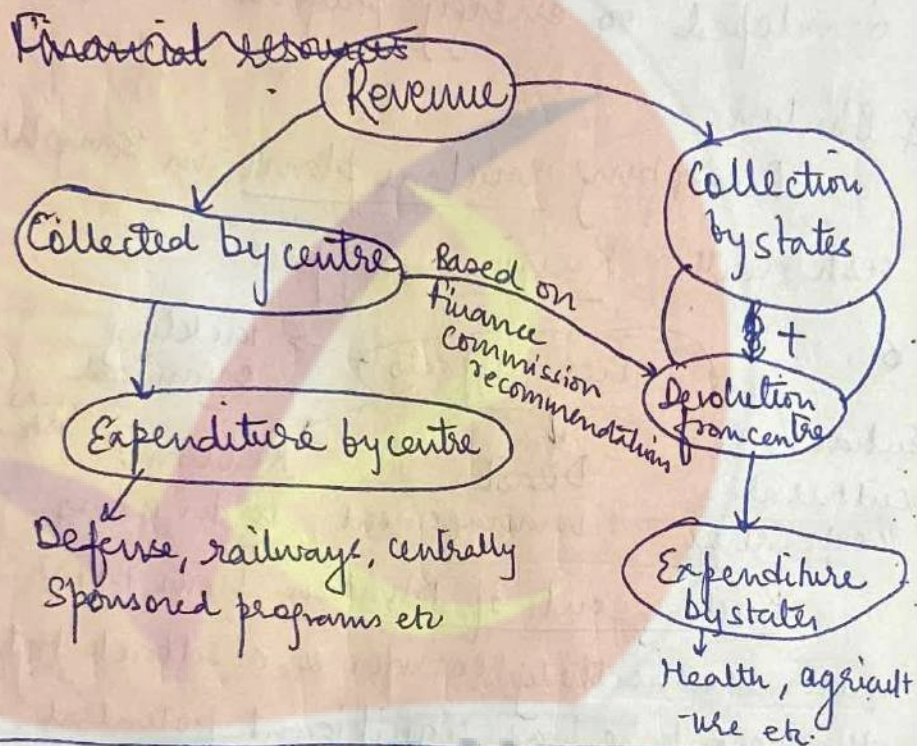 Financial resources
Revenue
Collected by centre
Collection
by states
Based on
finance
commission
recommendation
+
Devolution
from centre
Expenditure by centre
Defense, railways, centrally
Sponsored programs etc
Expenditure
by states
Health, agricult
-ure etc.